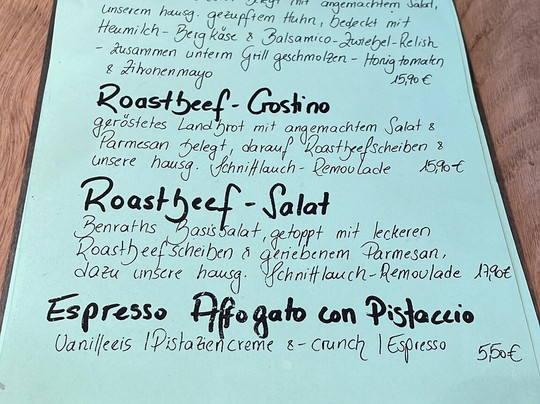 belegt mit angemachtem Salat,
unserem hausg. gezupftem Huhn, bedeckt mit
Heumilch-Bergkäse & Balsamico-Zwiebel-Relish
- zusammen unterm Grill geschmolzen - Honigtomaten
& Zitronenmayo 15,90€
Roastbeef-Crostino
geröstetes Landbrot mit angemachtem Salat &
Parmesan belegt, darauf Roastbeefscheiben &
unsere hausg. Schnittlauch-Remoulade 15,90€
Roastbeef-Salat
Benraths Basissalat, getoppt mit leckeren
Roastbeefscheiben & geriebenem Parmesan,
dazu unsere hausg. Schnittlauch-Remoulade 17,90€
Espresso Affogato con Pistaccio
Vanilleeis | Pistaziencreme & -crunch | Espresso 5,50€